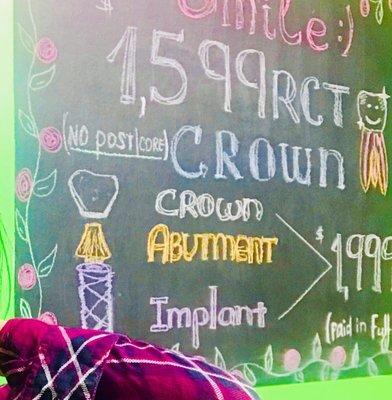 Smile :)
1,599 RCT
(NO POST/CORE) CROWN
CROWN
ABUTMENT
$1,999
Implant
(paid in full